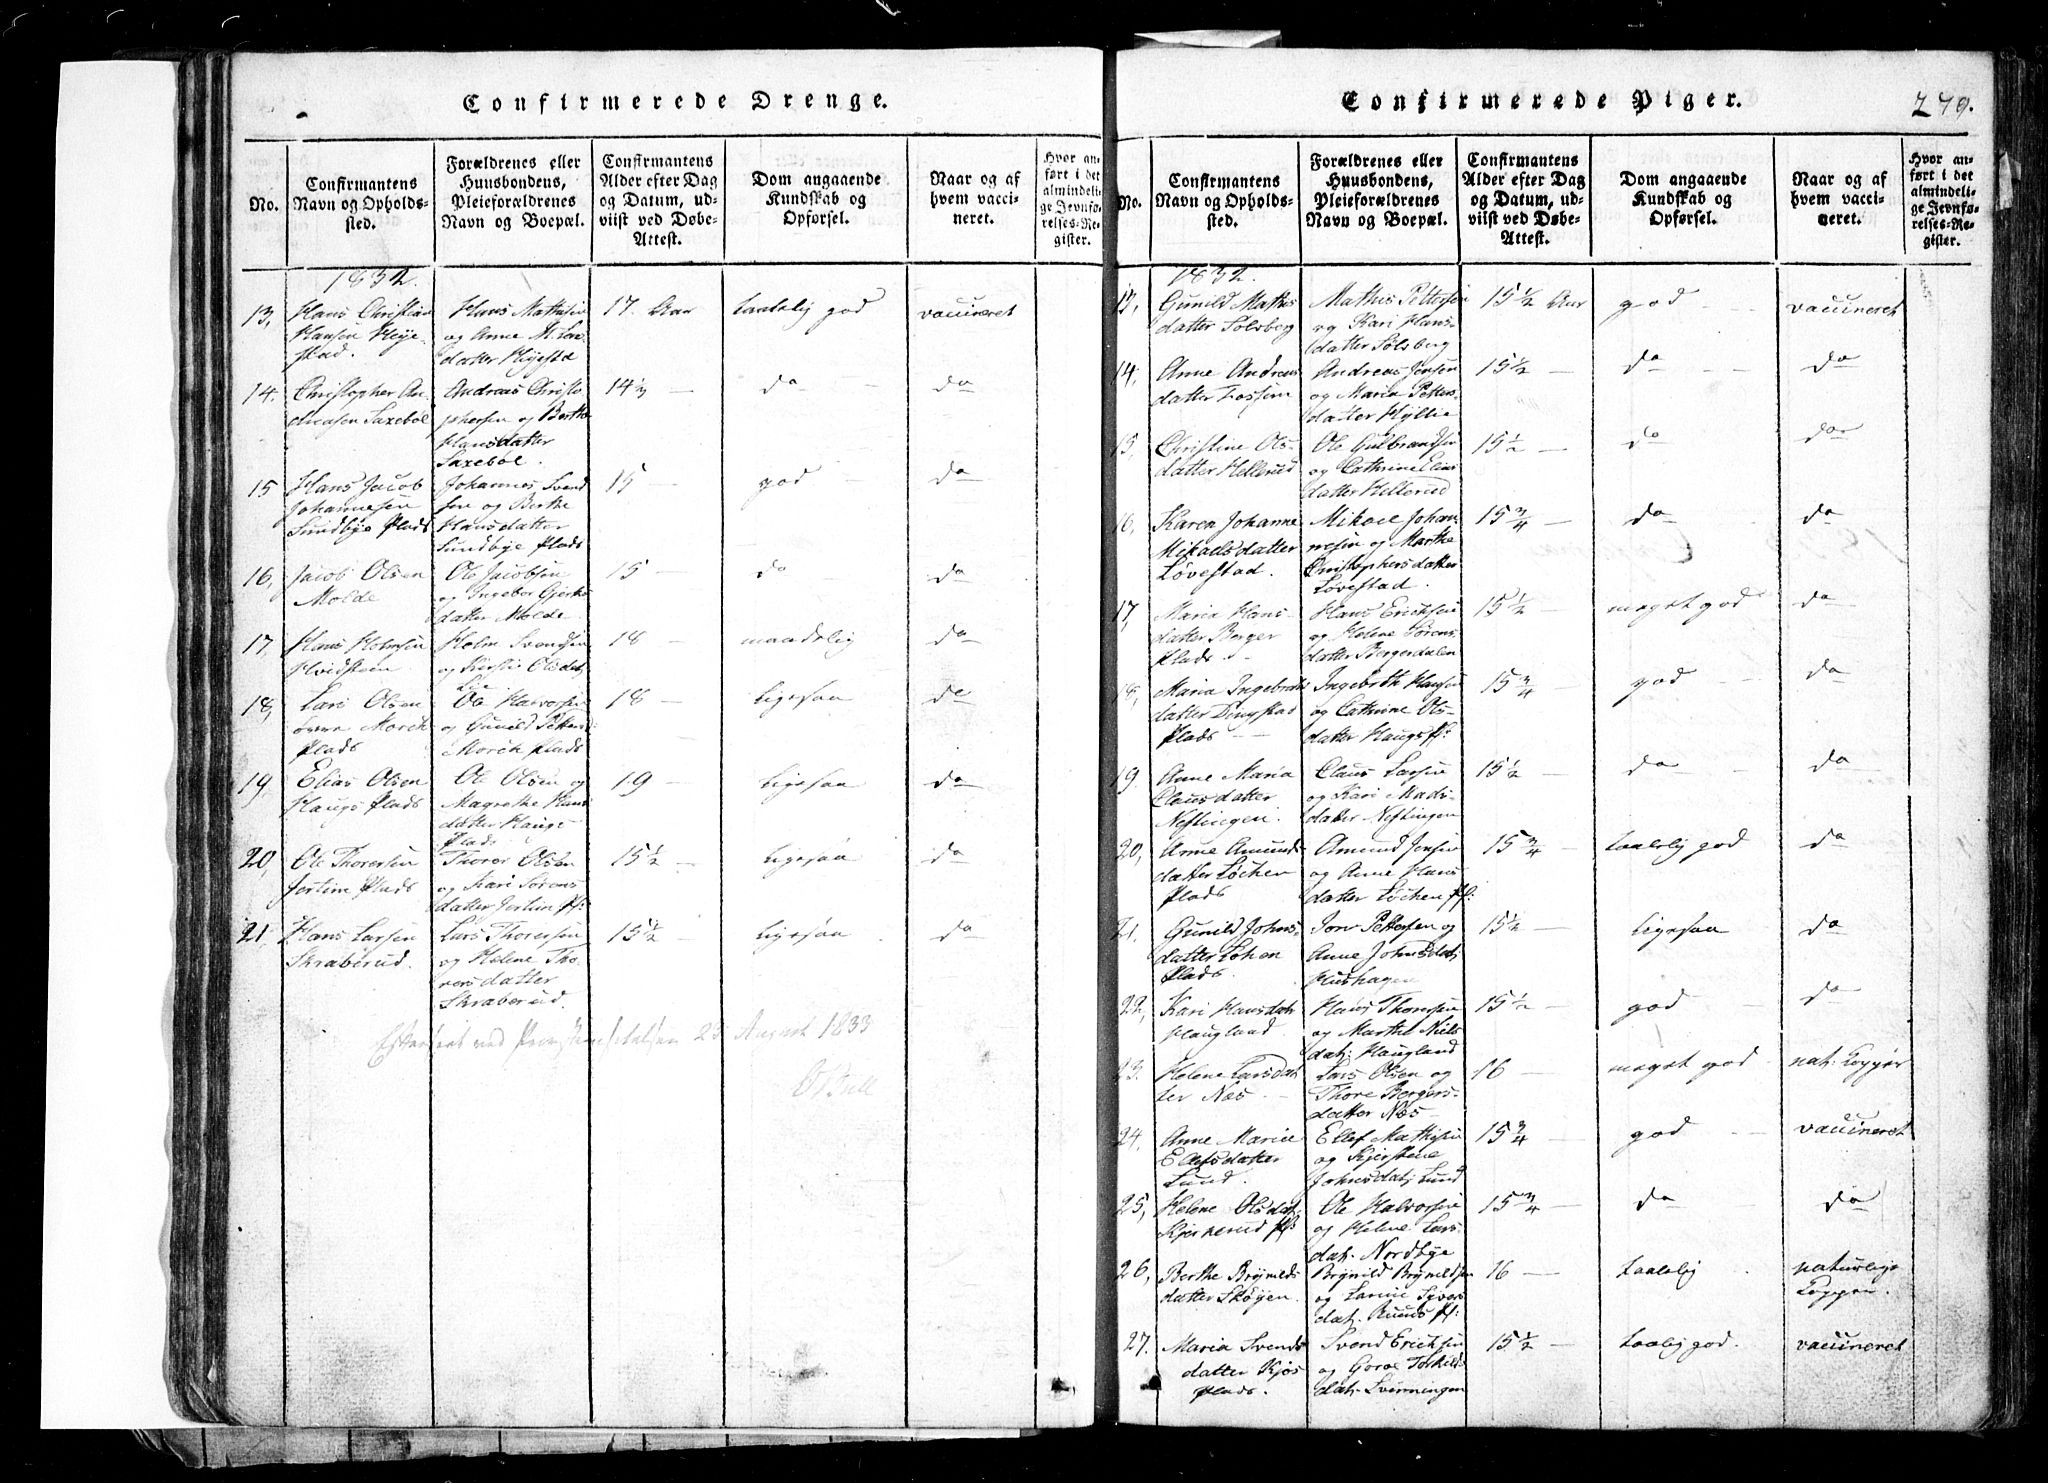 Confirmerede Drenge.
No.
Confirmantens
Navn og Opholds-
sted.
Forældrenes eller
Huusbondens,
Pleieforældrenes
Navn og Boepæl.
Confirmantens
Alder efter Dag
og Datum, ud-
viist ved Døbe-
Attest.
Dom angaaende
Kundskab og
Opførsel.
Naar og af
hvem vacci-
neret.
Hvor an-
ført i det
almindeli-
ge Jevnfø-
relses-Re-
gister.
1832.
13,
Hans Christian
Hansen Heye-
stad.
Hans Mathisen
og Anne M. Lars
datter Heyestad
17. Aar
taalelig god
vaccineret
14.
Christopher An-
dreasen Saxebøl
Andreas Christo
phersen og Berthe
Hansdatter
Saxebøl.
14 1/2 —
do —
do
15
Hans Jacob
Johannesen
Sundbye Plads
Johannes Svend
sen og Berthe
Hansdatter
Sundbye Plads
15 —
god —
do
16,
Jacob Olsen
Molde
Ole Jacobsen
og Ingebor Gjerts
datter Molde
15 —
do —
do
17,
Hans Holmsen
Hvidsteen
Holm Svendsen
og Kirstie Olsdat,
Lie
18 —
maadelig
do
18,
Lars Olsen
Morch
Plads
Ole Halvorsen
og Gunild Petters
Morch Plads
18 —
ligesaa
do
19,
Elias Olsen
Haugs Plads
Ole Olsen og
Magrethe Hans
datter Haugs
Plads
19 —
ligesaa
do
20,
Ole Thorersen
Jertim Plads
Thorer Olsen
og Kari Sørens
datter Jertim Pl:
15 1/2 —
ligesaa
do
21
Hans Larsen
Skraberud.
Lars Thorersen
og Helene Tho-
rersdatter
Skraberud.
15 1/2 —
ligesaa
do
August 1833
Bull
Confirmerede Piger.
279.
No.
Confirmantens
Navn og Opholds-
sted.
Forældrenes eller
Huusbondens,
Pleieforældrenes
Navn og Boepæl.
Confirmantens
Alder efter Dag
og Datum, ud-
viist ved Døbe-
Attest.
Dom angaaende
Kundskab og
Opførsel.
Naar og af
hvem vacci-
neret.
Hvor an-
ført i det
almindeli-
ge Jevnfø-
relses-Re-
gister.
1832.
13,
Gunild Mathis
datter Sølsberg
Mathis Pettersen
og Kari Hans-
datter Sølsberg
15 1/2 Aar
god —
vaccineret
14,
Anne Andreas
datter Fossum
Andreas Jensen
og Maria Petters-
datter Hyllie
15 1/2 —
do —
do
15,
Christine Ols-
datter Hellerud
Ole Gulbrandsen
og Cathrine Elias
datter Hellerud
15 1/2 —
do
do
16,
Karen Johanne
Mikaelsdatter
Løvestad.
Mikael Johan-
nesen og Marthe
Christophersdatter
Løvestad.
15 3/4 —
do
do
17,
Maria Hans
datter Berger
Plads.
Hans Ericksen
og Helene Sørens-
datter Bergerdalen
15 1/2 —
meget god
do
18,
Maria Ingebreths
datter Dingstad
Plads —
Ingebreth Hansen
og Cathrine Ols-
datter Haugs Pl:
15 3/4 —
god —
do
19,
Anne Maria
Clausdatter
Neslingen.
Claus Larsen
og Kari Mads-
datter Neslingen
15 1/2 —
do
do
20,
Anne Amunds
datter Løchen
Plads
Amund Jensen
og Anne Hans
datter Løchen Pl:
15 3/4 —
taalelig god
do
21,
Gunild Johns-
datter Løhen
Plads.
Jon Pettersen og
Anne Johnsdat,
Hushagen
15 1/2 —
ligesaa
do
22,
Kari Hansdat
Haugland
Hans Thoresen
og Marthe Niels
dat, Haugland
15 1/2 —
god —
do
23.
Helene Larsdat
ter Næs —
Lars Olsen og
Thore Bergers-
datter Næs
16 —
meget god
nat. Kopper
24,
Anne Marie
Ellefsdatter
Lund.
Ellef Mathisen
og Kjerstine
Johnsdat, Lund
15 3/4 —
god —
vaccineret
25,
Helene Olsdat,
Kjernerud Pl:
Ole Halvorsen
og Helene Lars-
dat, Nordbye
15 3/4 —
do —
do
26,
Berthe Brynilds
datter Skøyen.
Brynild Brynildsen
og Syvers
dat. Ruuds Pl:
16 —
taalelig
naturlige
Kopper.
27.
Maria Svends
datter Kjøs
Plads.
Svend Ericksen
og Goroe Torkilds
dat. Svinningen
15 1/2 —
taalig god.
vaccineret